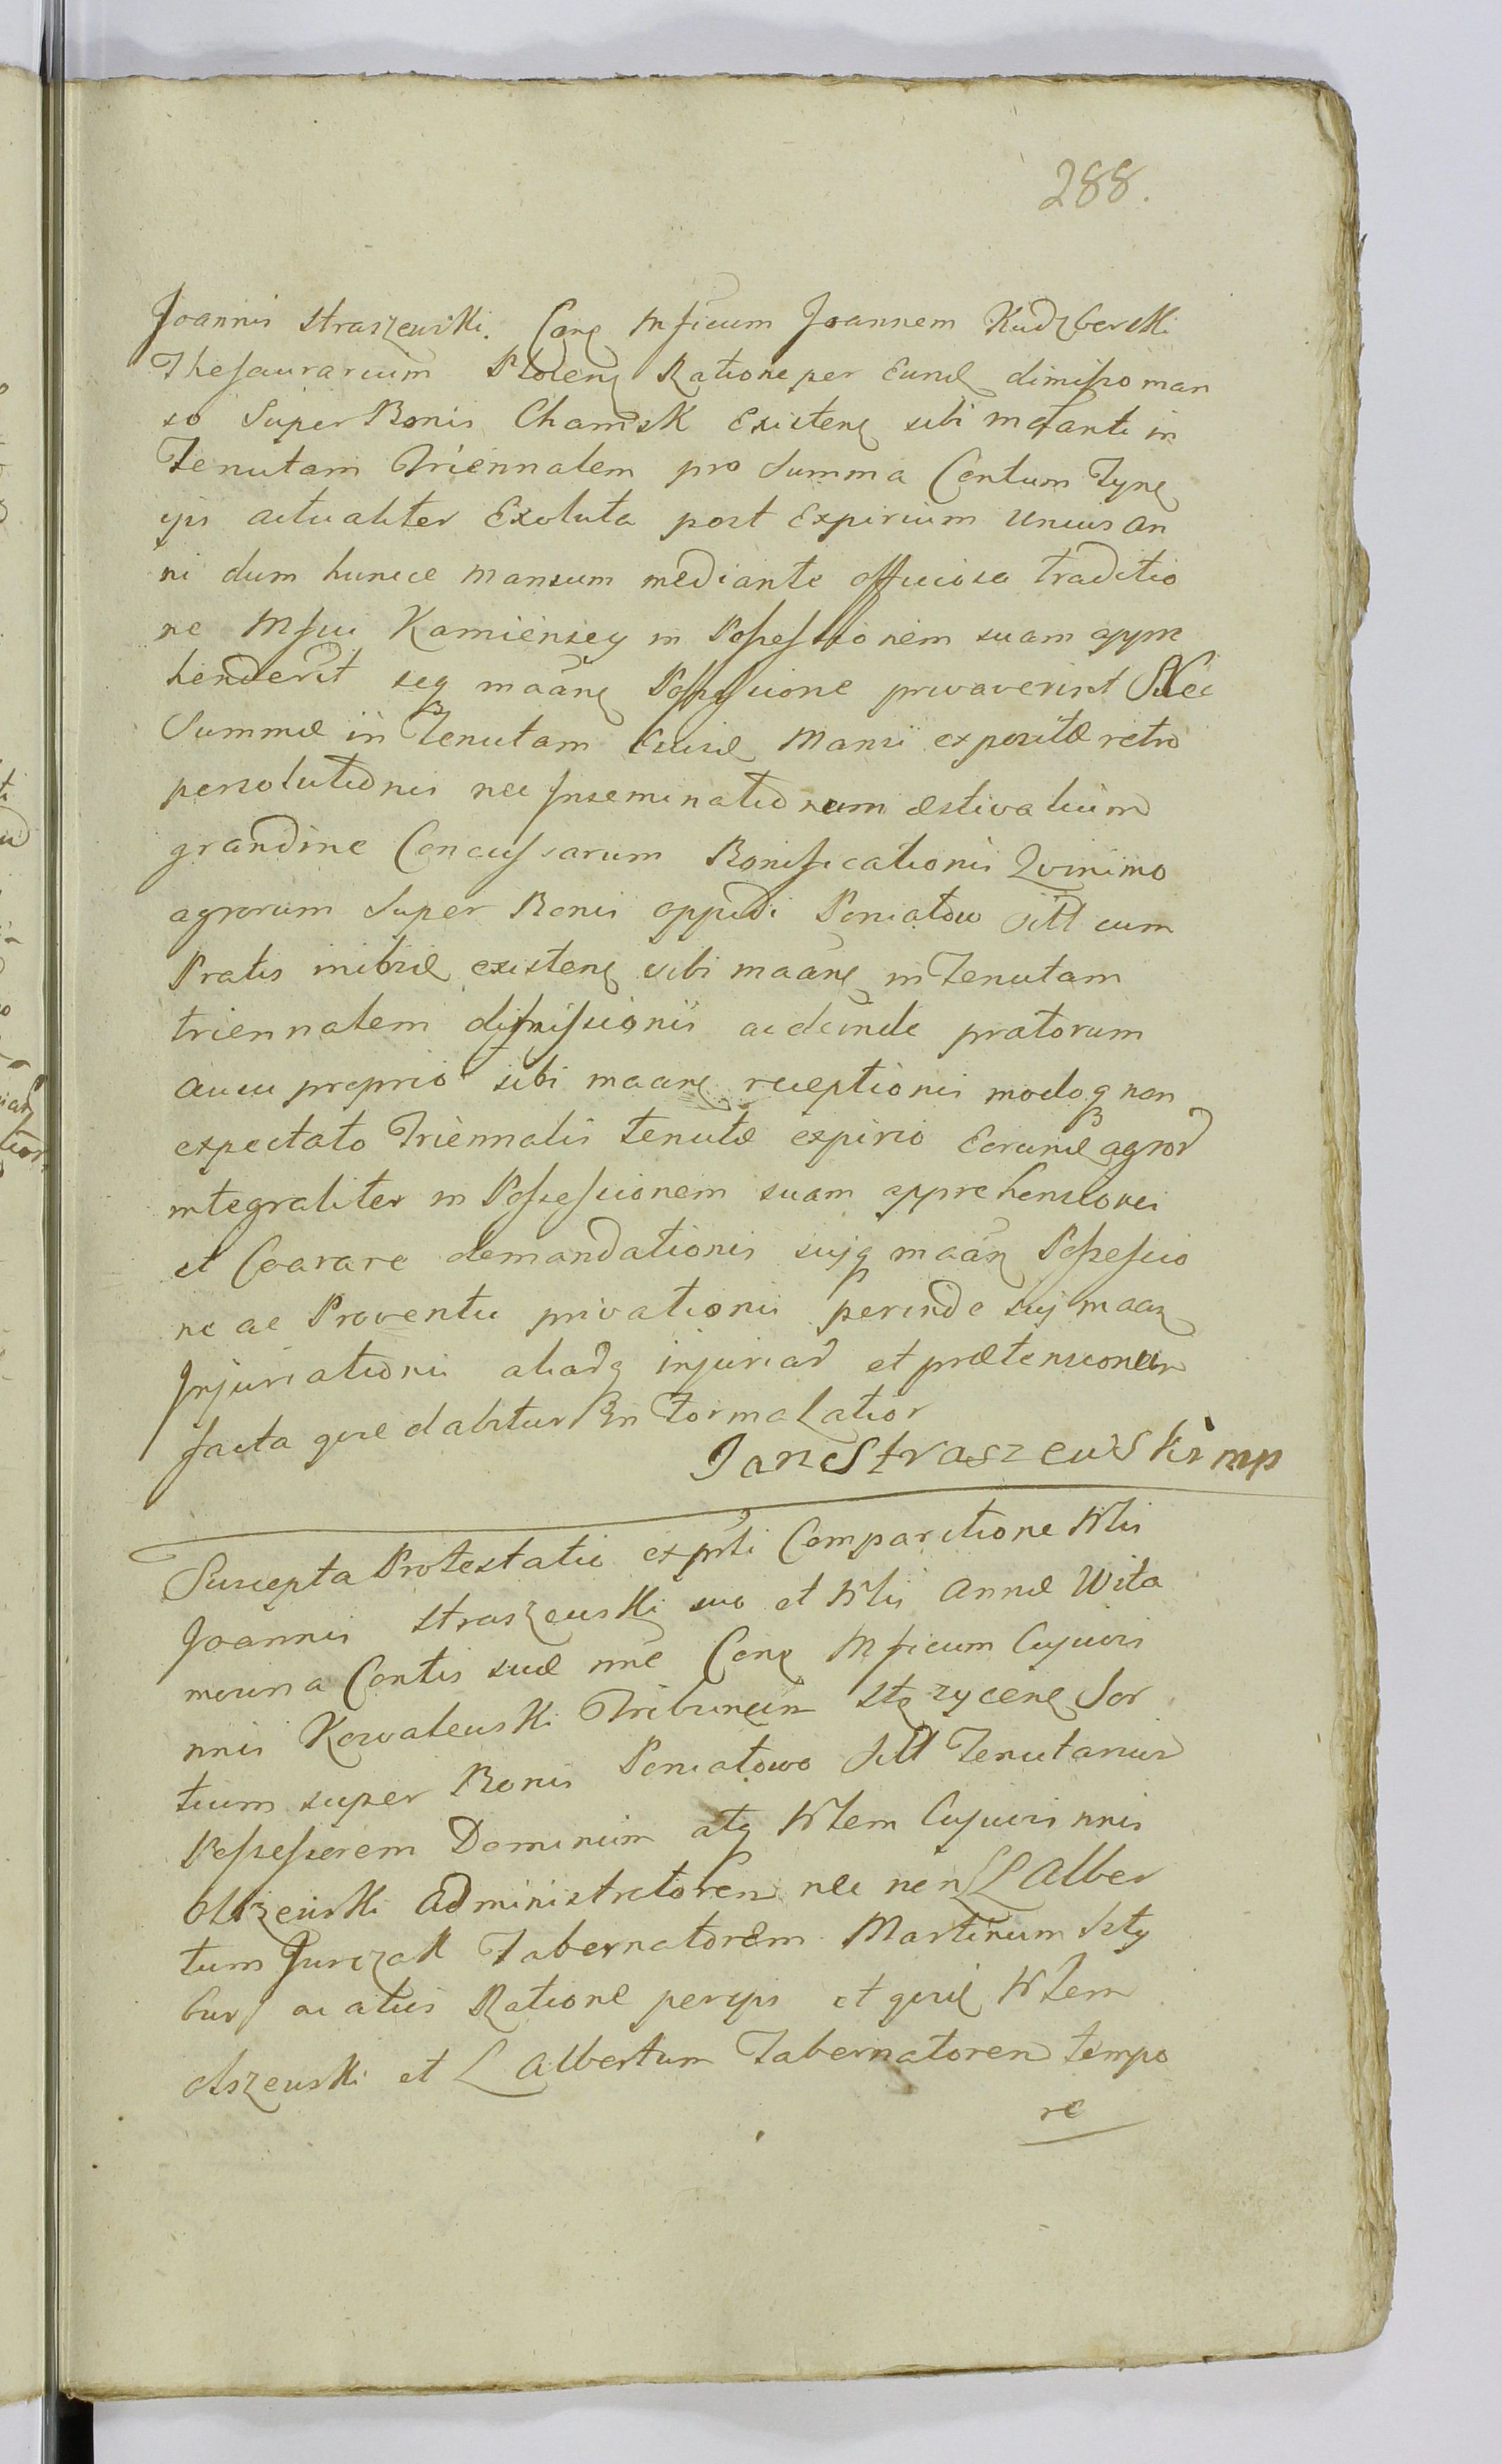 288.
Joannis Straszewski. Cong Mficum Joannem Kudzberski
Thesaurarium Plocens Ratione per Eund dimisso man
so Super Bonis Chamsk Existens sibi mafanti in
Tenutam Triennalem pro Summa Centum Tynf
ipi actualiter Exoluta post Expirium Unius an
ni dum huncce mansum mediante officiosa traditio
ne Mfici Kamienscy in Possessionem suam appre
henderit seq maang Possessione privaverint Nec
Summæ in Tenutam Ejusd Mansi expositæ retro
persolutionis nec Inseminationum æstivalium
grandine Concussarum Bonificationis Quinimo
agrorum Super Bonis oppidi Poniatow sitt cum
Pratis inibiq existens sibi maang in Tenutam
triennalem dismissionis ac deinde pratorum
ausu proprio sibi maang receptionis modoq non
expectato Triennalis tenutæ expirio Eorund agror
integraliter in Possessionem suam apprehensionis
et Coarare demandationis suiq maang Possessio
ne ac Proventu privationis perinde suj maang
Injuriationis aliarq injuriar et prætensionum
facta quæ dabitur in Forma Latior
Jan Straszewski mp
Suscepta Protestatio ex prti Comparitione Nlis
Joannis Straszewski suo et Nlis Annæ Wita
mowna Contis suæ nne Cong Mficum Cujusvis
nnis Kowalewski Tribunum Stezycens Sor
tium super Bonis Poniatowo sitt Tenutarium
Possessorem Dominum atq Nlem Cujusvis nnis
Olszewski Administratorem nec non LL Alber
tum Jurczak Tabernatorem Martinum Szty
bur ac alios Ratione per ips et quid Nlem
olszewski et L Albertum Tabernatorem tempo
re